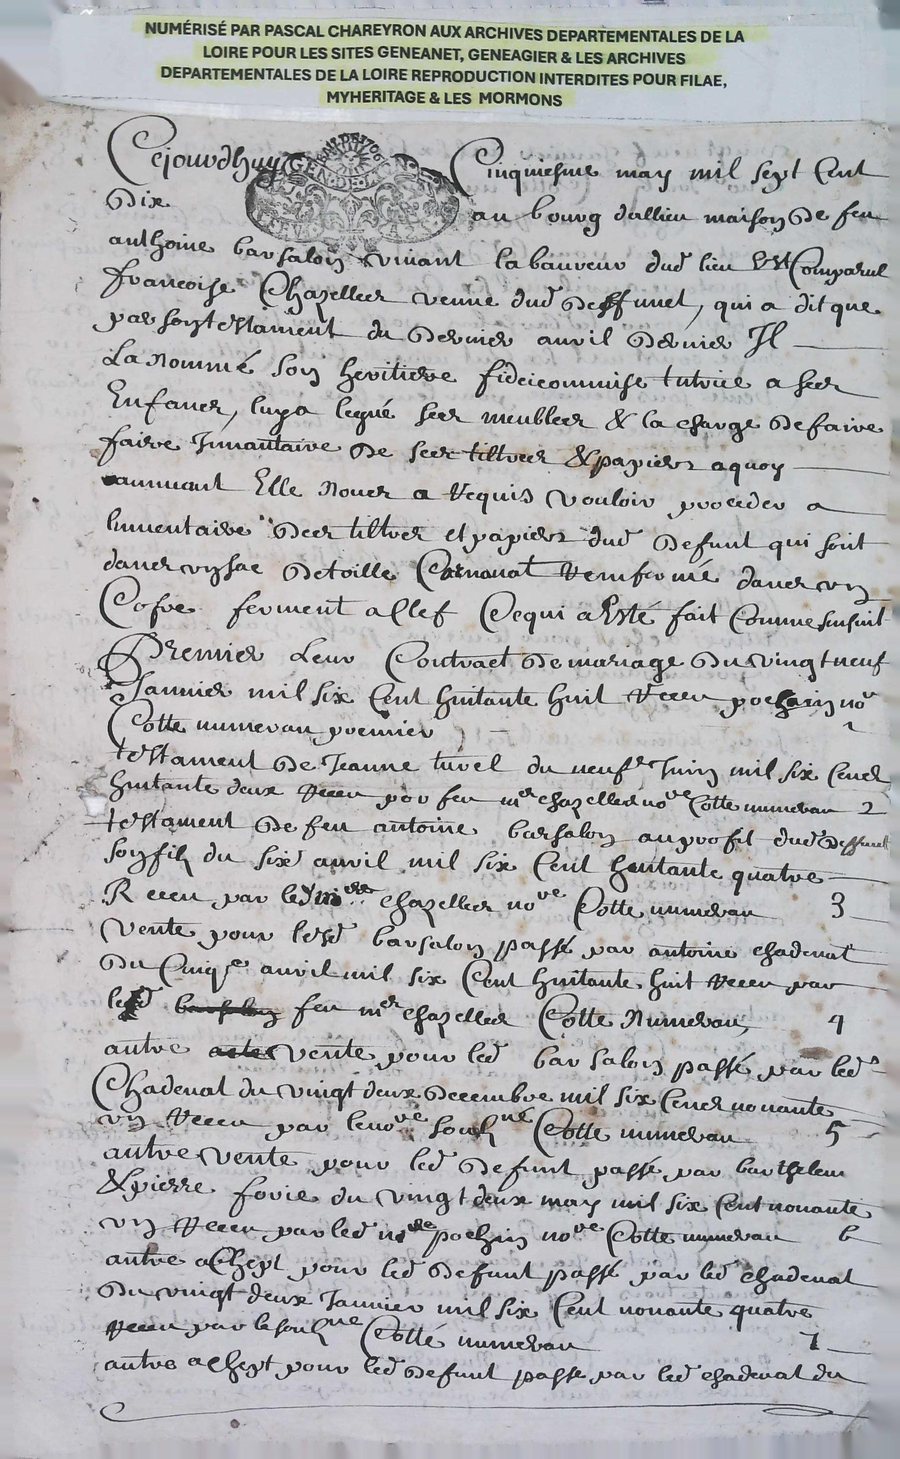 NUMÉRISÉ PAR PASCAL CHAREYRON AUX ARCHIVES DEPARTEMENTALES DE LA
LOIRE POUR LES SITES GENEANET, GENEAGIER & LES ARCHIVES
DEPARTEMENTALES DE LA LOIRE REPRODUCTION INTERDITES POUR FILAE,
MYHERITAGE & LES MORMONS
Cejourdhuy Cinquiesme may mil sept Cent
dix au bourg dallieu maison de feu
anthoine barsalon vivant laboureur dud lieu Est Comparue
francoise Chazelles veuve dud deffunct, qui a dit que
par son testament du dernier avril dernier Il
La nommé son heritiere fideicommise tutrice a ses
Enfans, luy a legué ses meubles & la charge de faire
faire Innantaire de ses tiltres & papiers aquoy
Elle Nous a requis vouloir proceder a
linventaire des tiltres et papiers dud defunt qui sont
dans un sac de toille renfermé dans un
Cofre ferment a Clef Ce qui a Esté fait Comme sensuit
Premier Leur Contract de mariage du vingt neuf
Janvier mil six Cent huitante huit Receu pochin nore
Cotte numerau premier 1
testament de Jeanne turel du neufe Juin mil six Cens
huitante deux Receu par feu me chazelles nore Cotte numerau 2
testament de feu antoine barsalon au profit dud deffunct
son filz du six avril mil six Cent huitante quatre
Receu par led me chazelles nore Cotte numerau 3
Vente pour led barsalon passé par antoine chadenat
du Cinqe avril mil six Cent huitante huit Receu par
led feu me chazelles Cotte Numerau 4
autre vente pour led barsalon passé par led
Chadenat du vingt deux decembre mil six Cens nonante
un Receu par le nore Cotte numerau 5
autre vente pour led defunt passé par barthelem
& pierre forie du vingt deux may mil six Cent nonante
un Receu par led me pochin nore Cotte numerau 6
autre achept pour led defunt passé par led chadenat
du vingt deux Janvier mil six Cent nonante quatre
Receu par le Cotté numerau 7
autre achept pour led defunt passé par led chadenat du